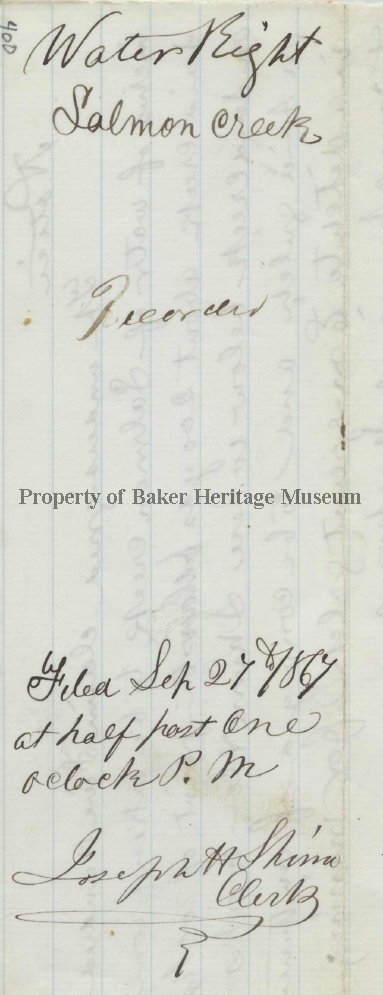 400
Water Right
Salmon Creek
Recorded
Property of Baker Heritage Museum
Filed Sep 27th/1867
at half past One
oclock P. M
Joseph H Shinn
Clerk